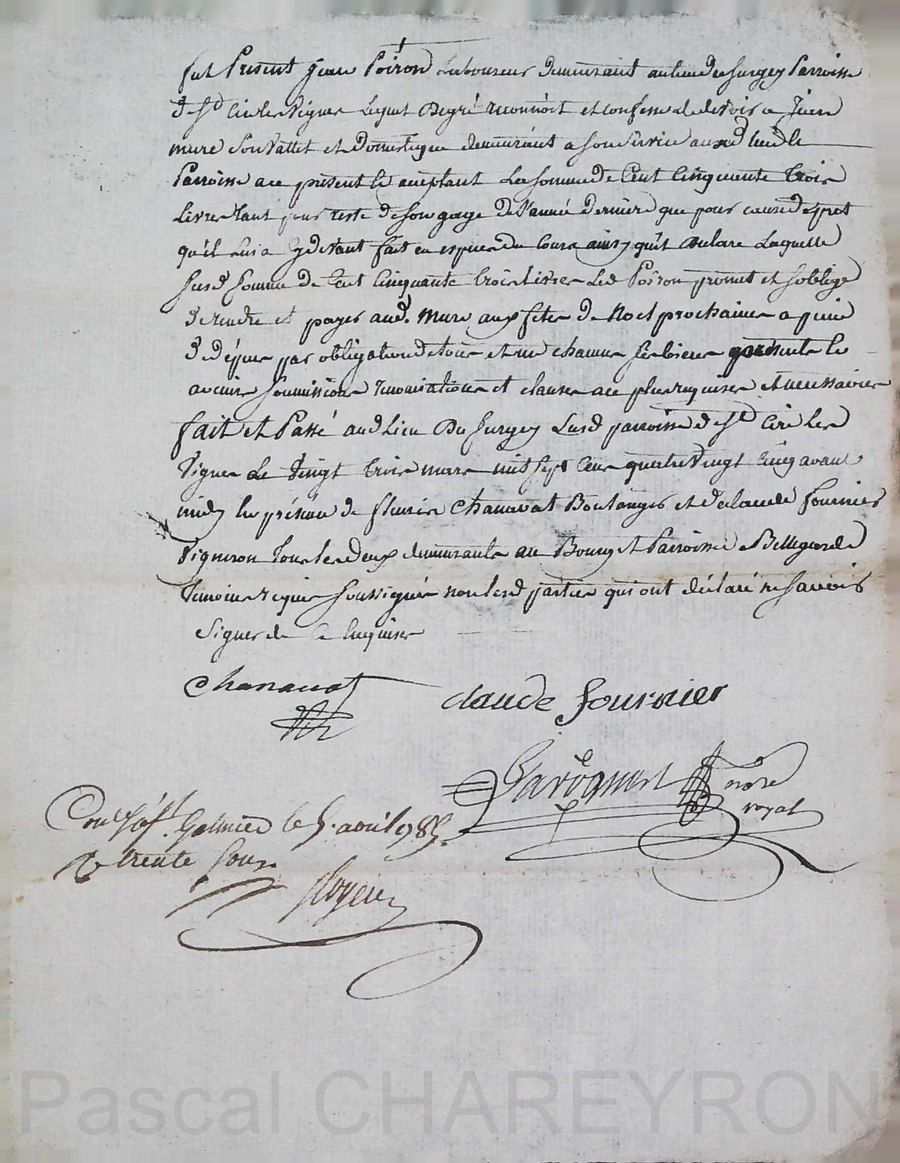 fut Présent Jean Poiron Laboureur demeurant au lieu de Surgey Parroisse
de St Cir les Vignes Lequel de gré reconnoit et confesse de devoir a
mure son vallet et domestique demeurant a son service aud lieu de
Parroisse ace présent et aceptant La somme de Cent Cinquante trois
Livres tant pour reste de son gage de l'année derniere que pour cause de pret
qu'il lui a cy devant fait en espece du cours ainsy qu'il declare Laquelle
susd somme de Cent Cinquante trois Livres Led Poiron promet et soblige
de rendre et payer aud. mure aux fetes de Noel prochaines a peine
de dépens par obligation de tous et un chacun ses biens présents et
avenir soumissions renonciations et clauses ace plus requises et necessaires
fait et Passé aud Lieu de Surgey susd parroisse de St Cire Les
Vignes Le Vingt trois mars mil sept cens quatre Vingt Cinq avant
midy En présence de fleurie Chanavat Boulanger et de claude fournier
Vigneron tous les deux demeurants au Bourg et Parroisse de Bellegarde
temoins requis soussignés non lesd parties qui ont déclaré ne savoir
signer de ce Enquises
Chanavat
claude fournier
nore
royal
Con.lé à St. Galmier le 5. avril 1785.
R trente sous